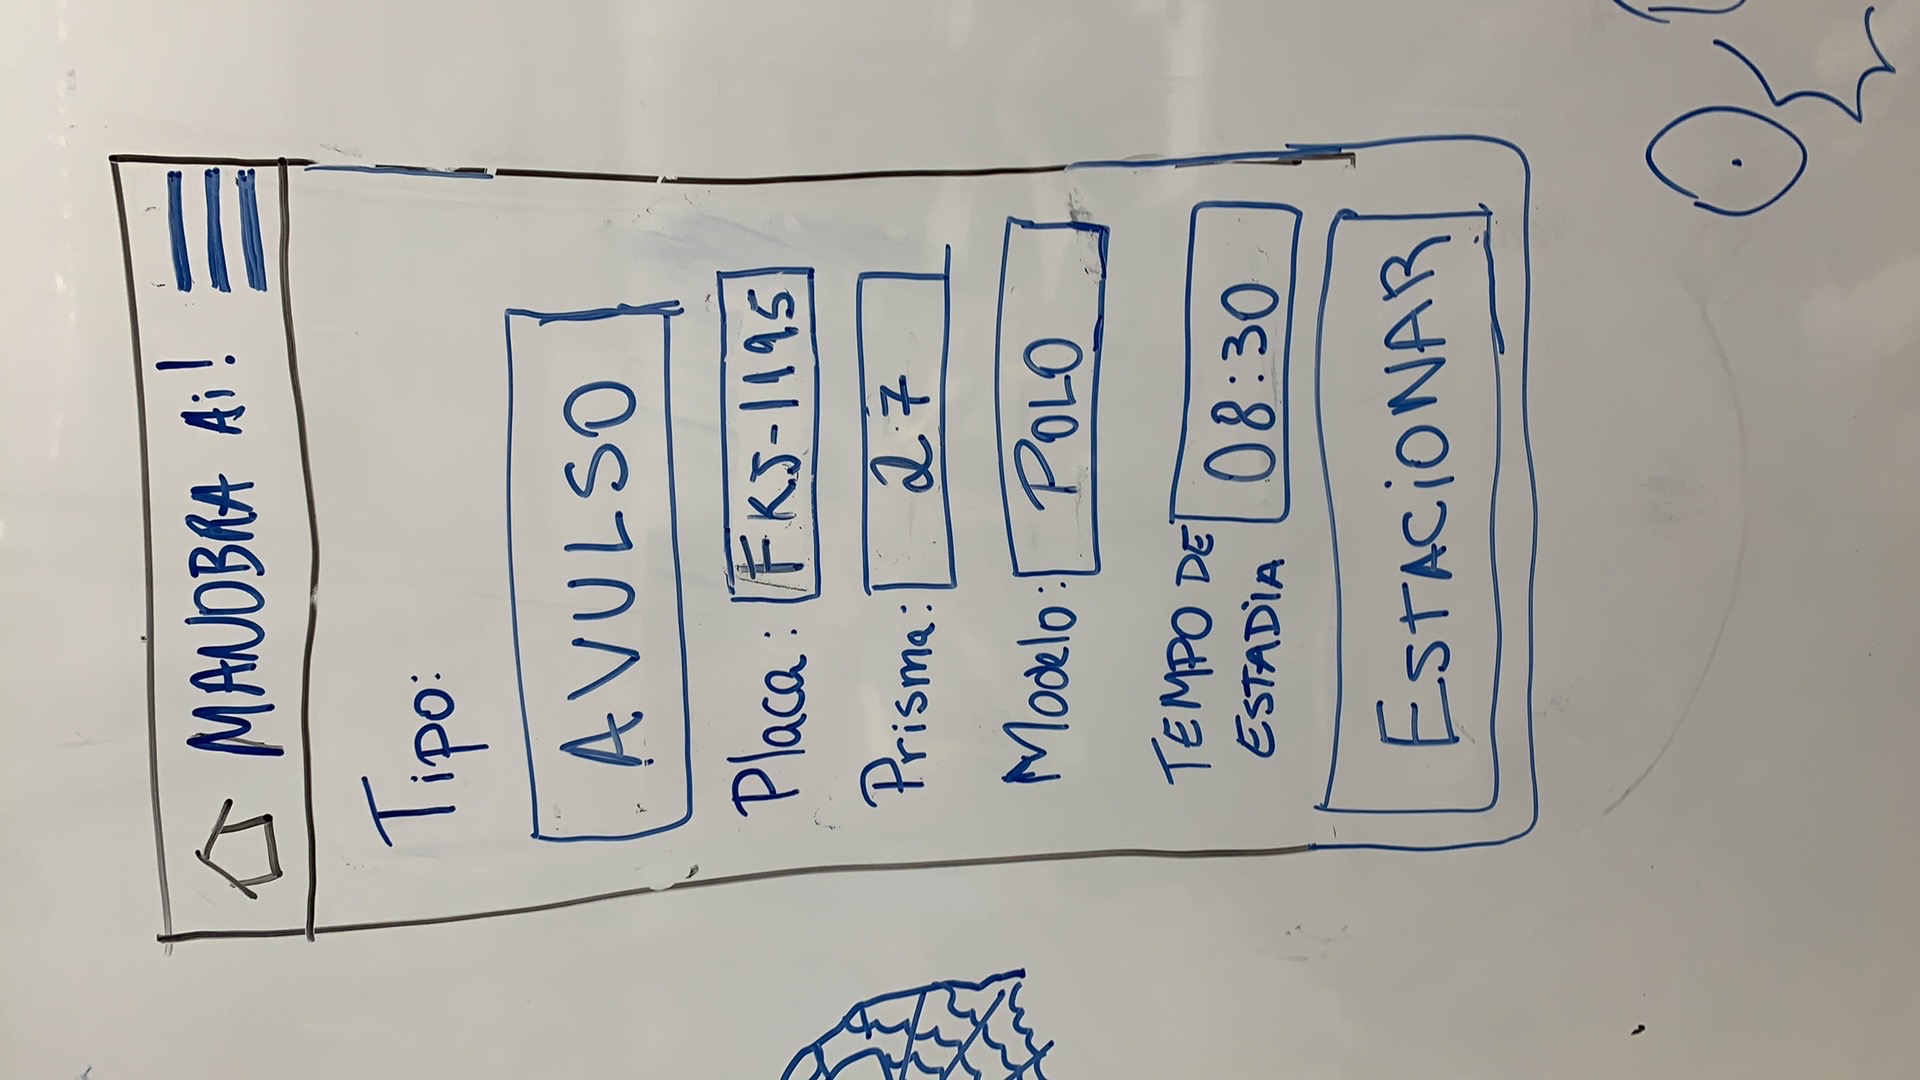 MANOBRA Ai!
Tipo:
AVULSO
Placa: FKJ-1195
Prisma: 27
Modelo: POLO
TEMPO DE
ESTADIA 08:30
ESTACIONAR